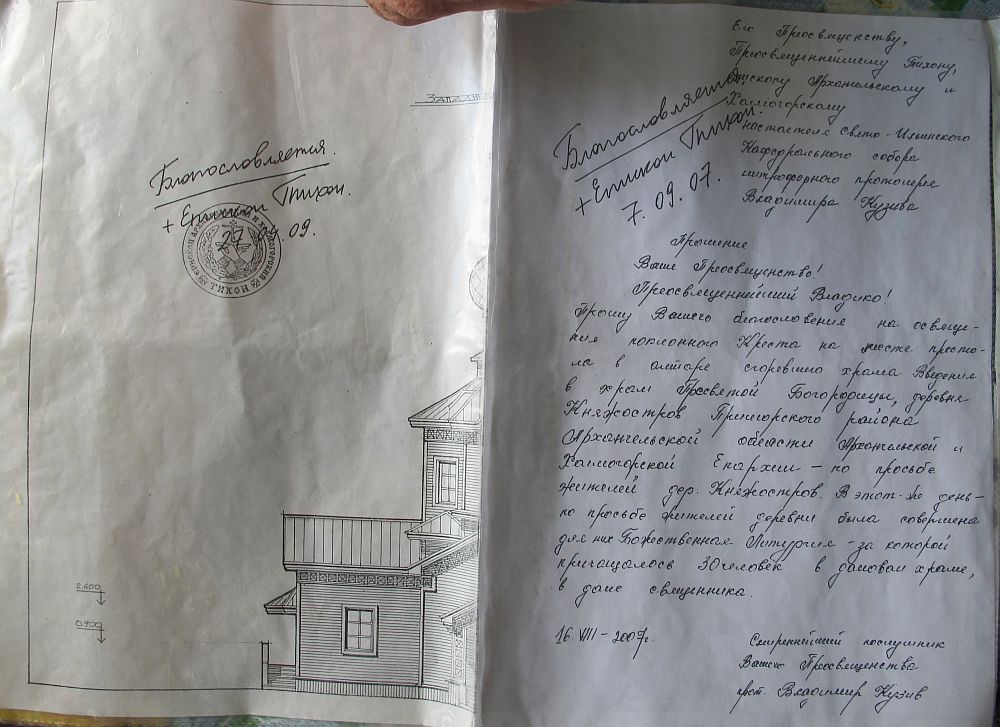 Запад
Благословляется.
+ Епископ Тихон.
09.
ТИХОН
2.600
0.900
Его Преосвященству,
Преосвященнейшему Тихону,
Епископу Архангельскому и
Холмогорскому
настоятеля Свято-Ильинского
Кафедрального собора
митрофорного протоиерея
Владимира Кузива
Благословляется
+ Епископ Тихон.
7. 09. 07.
Прошение
Ваше Преосвященство!
Преосвященнейший Владыко!
Прошу Вашего благословения на освяще-
ния поклонного Креста на месте престо-
ла в алтаре сгоревшего храма Введения
в храм Пресвятой Богородицы, деревня
Княжостров Приморского района
Архангельской области Архангельской и
Холмогорской Епархии – по просьбе
жителей дер. Княжостров. В этот-же день –
по просьбе жителей деревни была совершена
для них Божественная Литургия – за которой
причащалось 30 человек в домовом храме,
в доме священника.
16. VIII – 2007г.
Смиреннейший послушник
Вашего Преосвященства
прот. Владимир Кузив